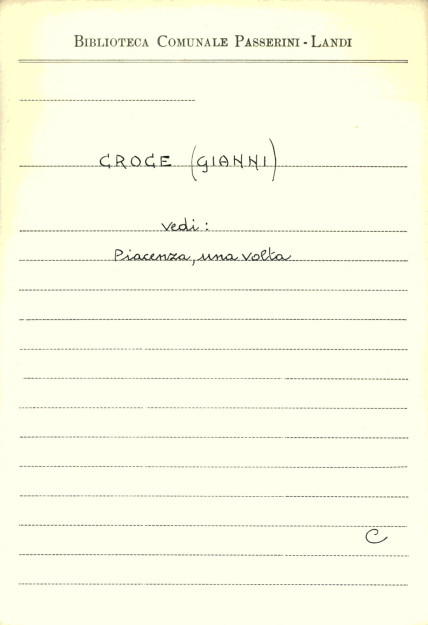 BIBLIOTECA COMUNALE PASSERINI - LANDI
CROCE (GIANNI)
vedi:
Piacenza, una volta
C